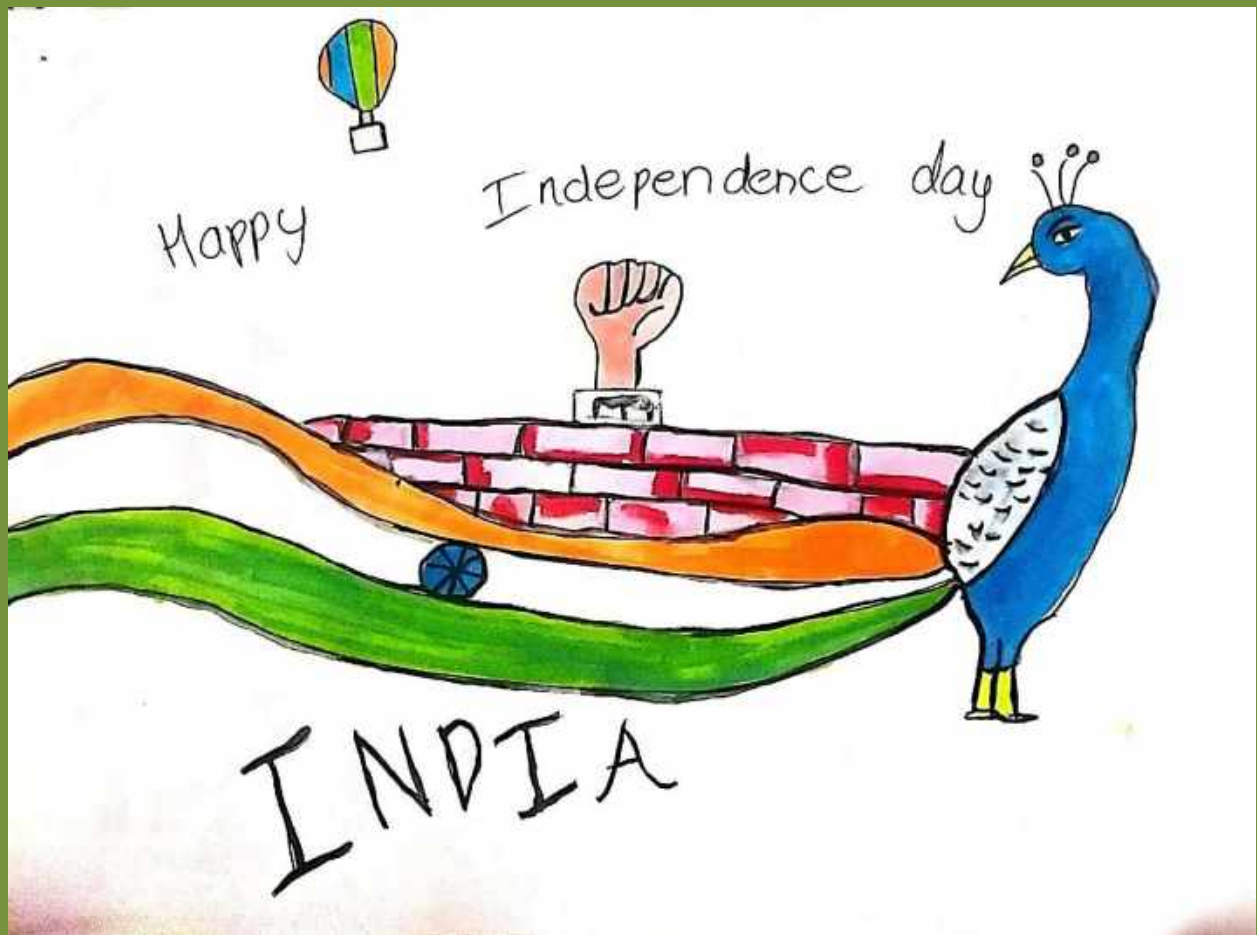 Happy Independence day
INDIA